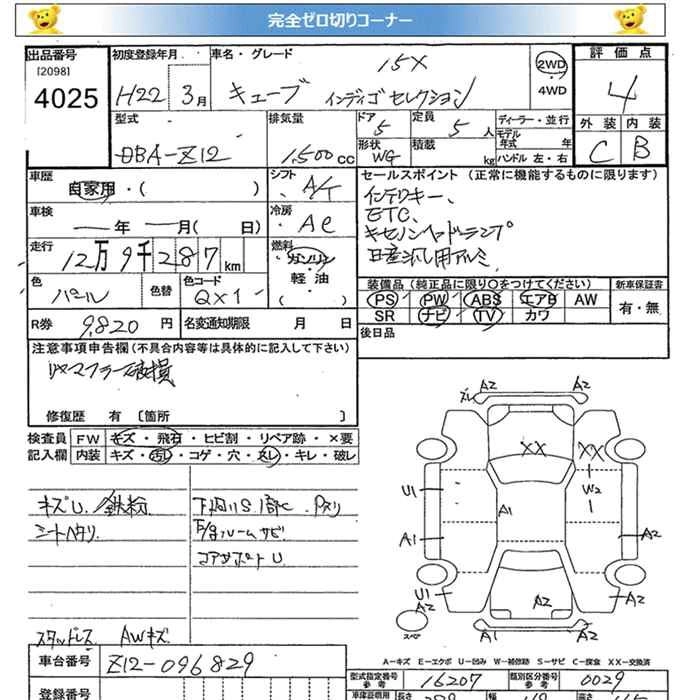 完全ゼロ切りコーナー
出品番号
[2098]
4025
初度登録年月
H22 3月
車名・グレード
15X
キューブ インディゴ セレクション
2WD
4WD
評価点
4
外装 内装
C B
型式
DBA-Z12
排気量
1,500cc
ドア
5
定員
5人
形状
WG
積載
kg
ディーラー・並行
モデル年式 年
ハンドル 左・右
車歴
自家用・( )
シフト
A/T
車検
年 月( 日)
冷房
AC
走行
12万9千287km
燃料
ガソリン
軽・油
( )
色
パール
色替
色コード
QX1
R券
9,820円
名変通知期限 月 日
セールスポイント (正常に機能するものに限ります)
インテリキー、
ETC、
キセノンヘッドランプ
日産汎用アルミ
装備品(純正品に限り○をつけてください)
PS PW ABS エアB AW
SR ナビ TV カワ
新車保証書
有・無
後日品
注意事項申告欄(不具合内容等は具体的に記入して下さい)
リヤマフラー破損
修復歴 有 [箇所 ]
検査員
記入欄
FW キズ・飛石・ヒビ割・リペア跡・×要
内装 キズ・汚レ・コゲ・穴・スレ・キレ・破レ
キズU 鉄粉
シートヘタリ
スタッドレス AWキズ
下廻りS
サビ
コアサポートU
A2 A2
XX XX
U1
W2
A1
A1 A2
U1
A2
A2
スペア
A1 A2
A-キズ E-エクボ U-凹み W-補修跡 S-サビ C-腐食 XX-交換済
車台番号
Z12-096829
登録番号
型式指定番号
参考
16207
類別区分番号
参考
0029
車庫証明用
長さ 幅 高さ